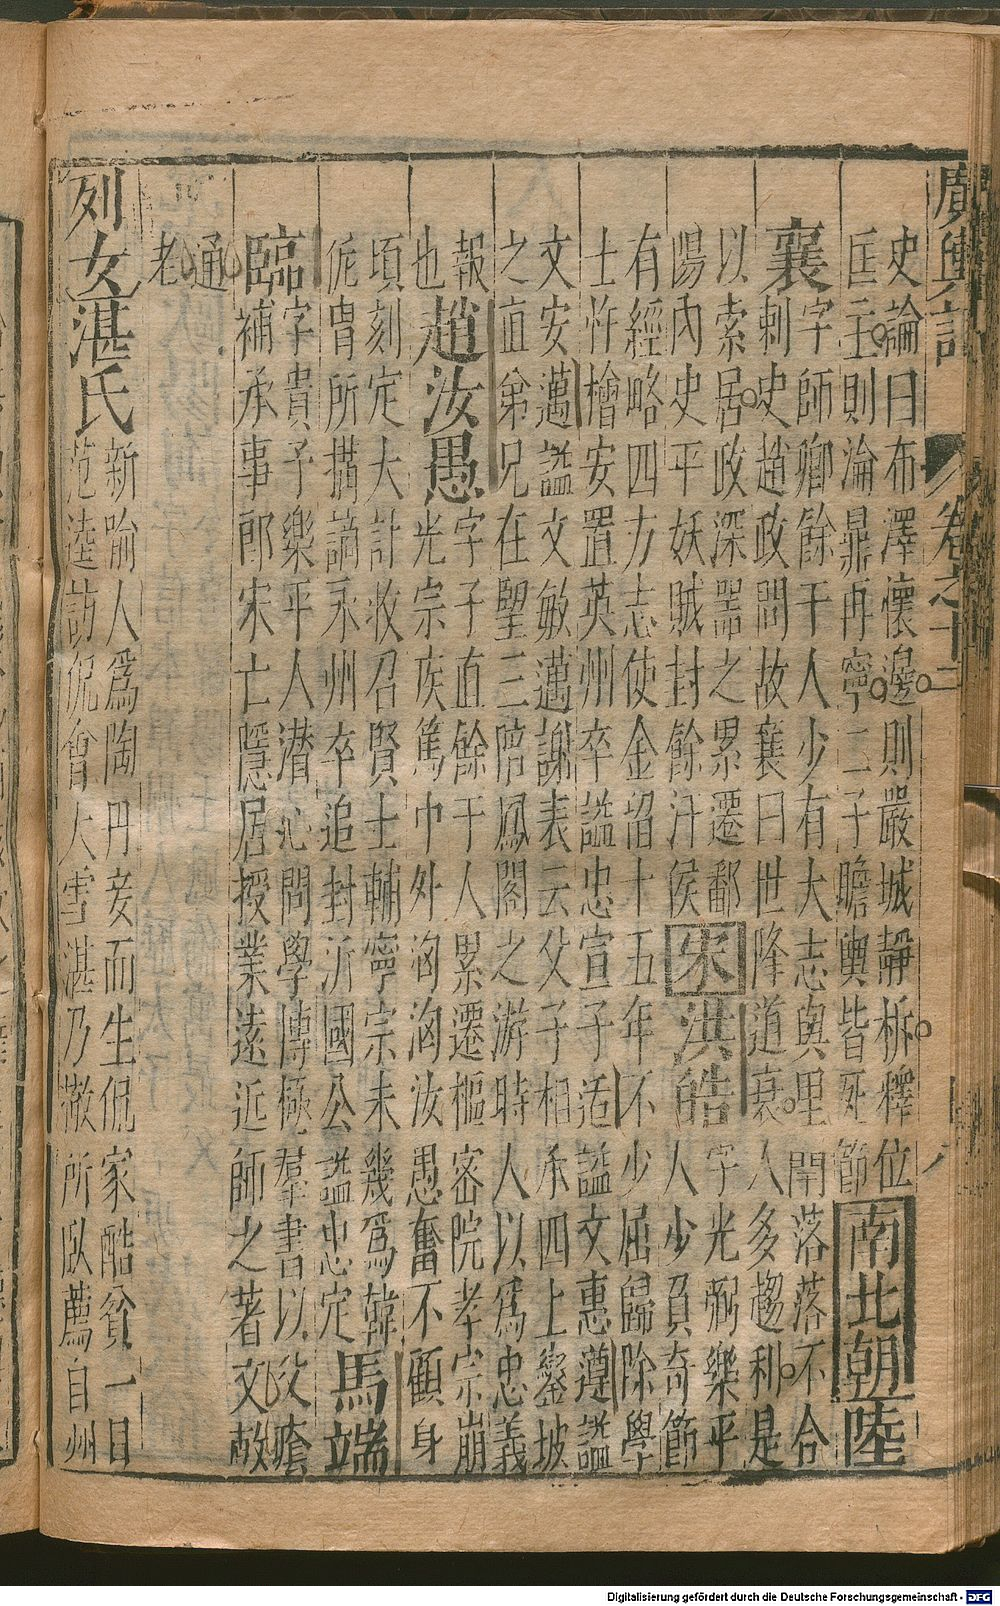 廣輿記 卷之十二 八
史論曰布澤懷邊則嚴城靜柝釋位
匡主則淪鼎再寧二子瞻輿皆死節
南北朝陸
襄
字師卿餘干人少有大志與里閈落落不合
刺史趙政問故襄曰世降道衰人多趨利是
以索居政深器之累遷鄱
陽內史平妖賊封餘汗侯
宋洪皓
字光弼樂平
人少負奇節
有經略四方志使金留十五年不少屈歸除學
士忤檜安置英州卒謚忠宣子适謚文惠遵謚
文安邁謚文敏邁謝表云父子相承四上鑾坡
之直弟兄在望三陪鳳閣之游時人以爲忠義
報
也
趙汝愚
字子直餘干人累遷樞密院孝宗崩
光宗疾篤中外洶洶汝愚奮不顧身
頃刻定大計收召賢士輔寧宗未幾爲韓
侂胄所搆謫永州卒追封沂國公謚忠定
馬端
臨
字貴子樂平人潛心問學博極羣書以父廕
補承事郎宋亡隱居授業遠近師之著文献
通
考
列女湛氏
新喻人爲陶丹妾而生侃家酷貧一日
范逵訪侃會大雪湛乃徹所臥薦自州
Digitalisierung gefördert durch die Deutsche Forschungsgemeinschaft - DFG